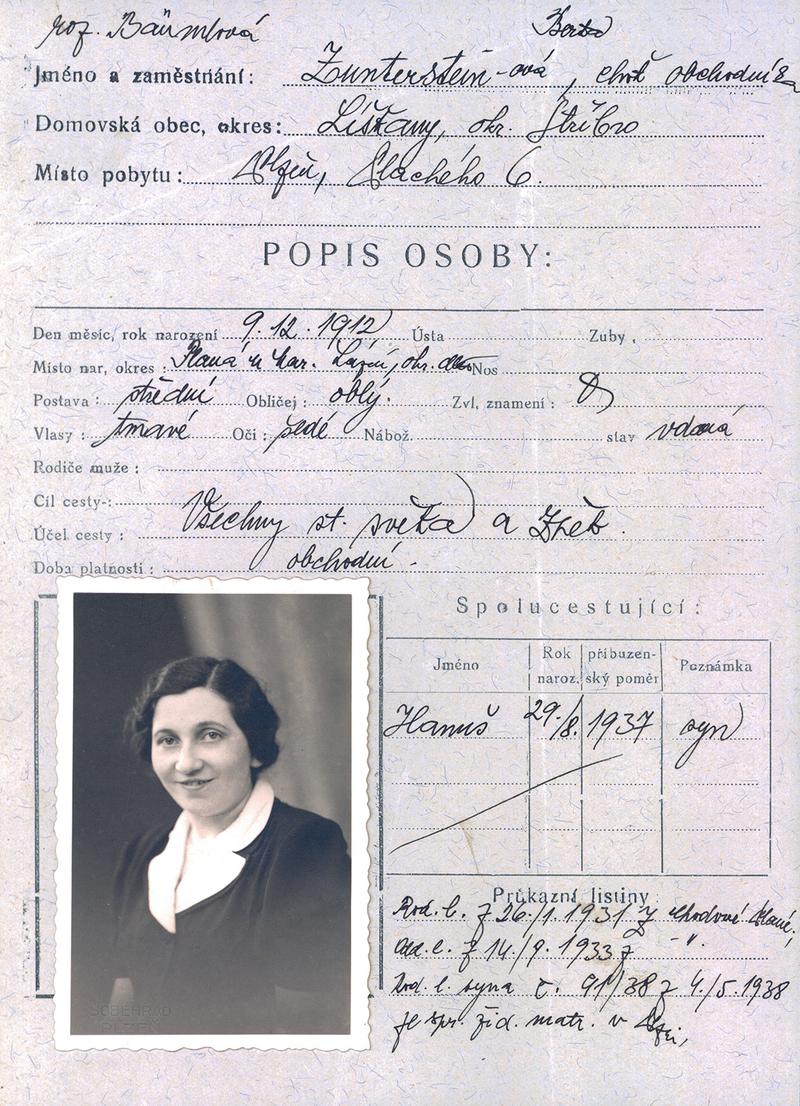 roz. Bäumlová Berta
Jméno a zaměstnání: Zunterstein-ová, choť obchodníka
Domovská obec, okres: Líšťany, okr. Stříbro
Místo pobytu: Plzeň, Plachého 6.
POPIS OSOBY:
Den měsíc, rok narození 9.12.1912 Ústa Zuby
Místo nar, okres: Planá u Mar. Lázní, okr. Nos
Postava: střední Obličej: oblý. Zvl, znamení:
Vlasy: tmavé Oči: šedé Nábož. stav vdaná
Rodiče muže:
Cíl cesty-: Všechny st. světa a Zpět.
Účel cesty:
Doba platnosti: obchodní -
Spolucestující:
Jméno Rok naroz. příbuzenský poměr Poznámka
Hanuš 29./8. 1937 syn
Průkazní listiny
Rod. l. z 26./1. 1931 z Chodové Plané,
Odd. l. z 14./9. 1933 z -"-
Rod. l. syna č. 91/38 z 4./5. 1938
je spr. žid. matr. v Plzni,